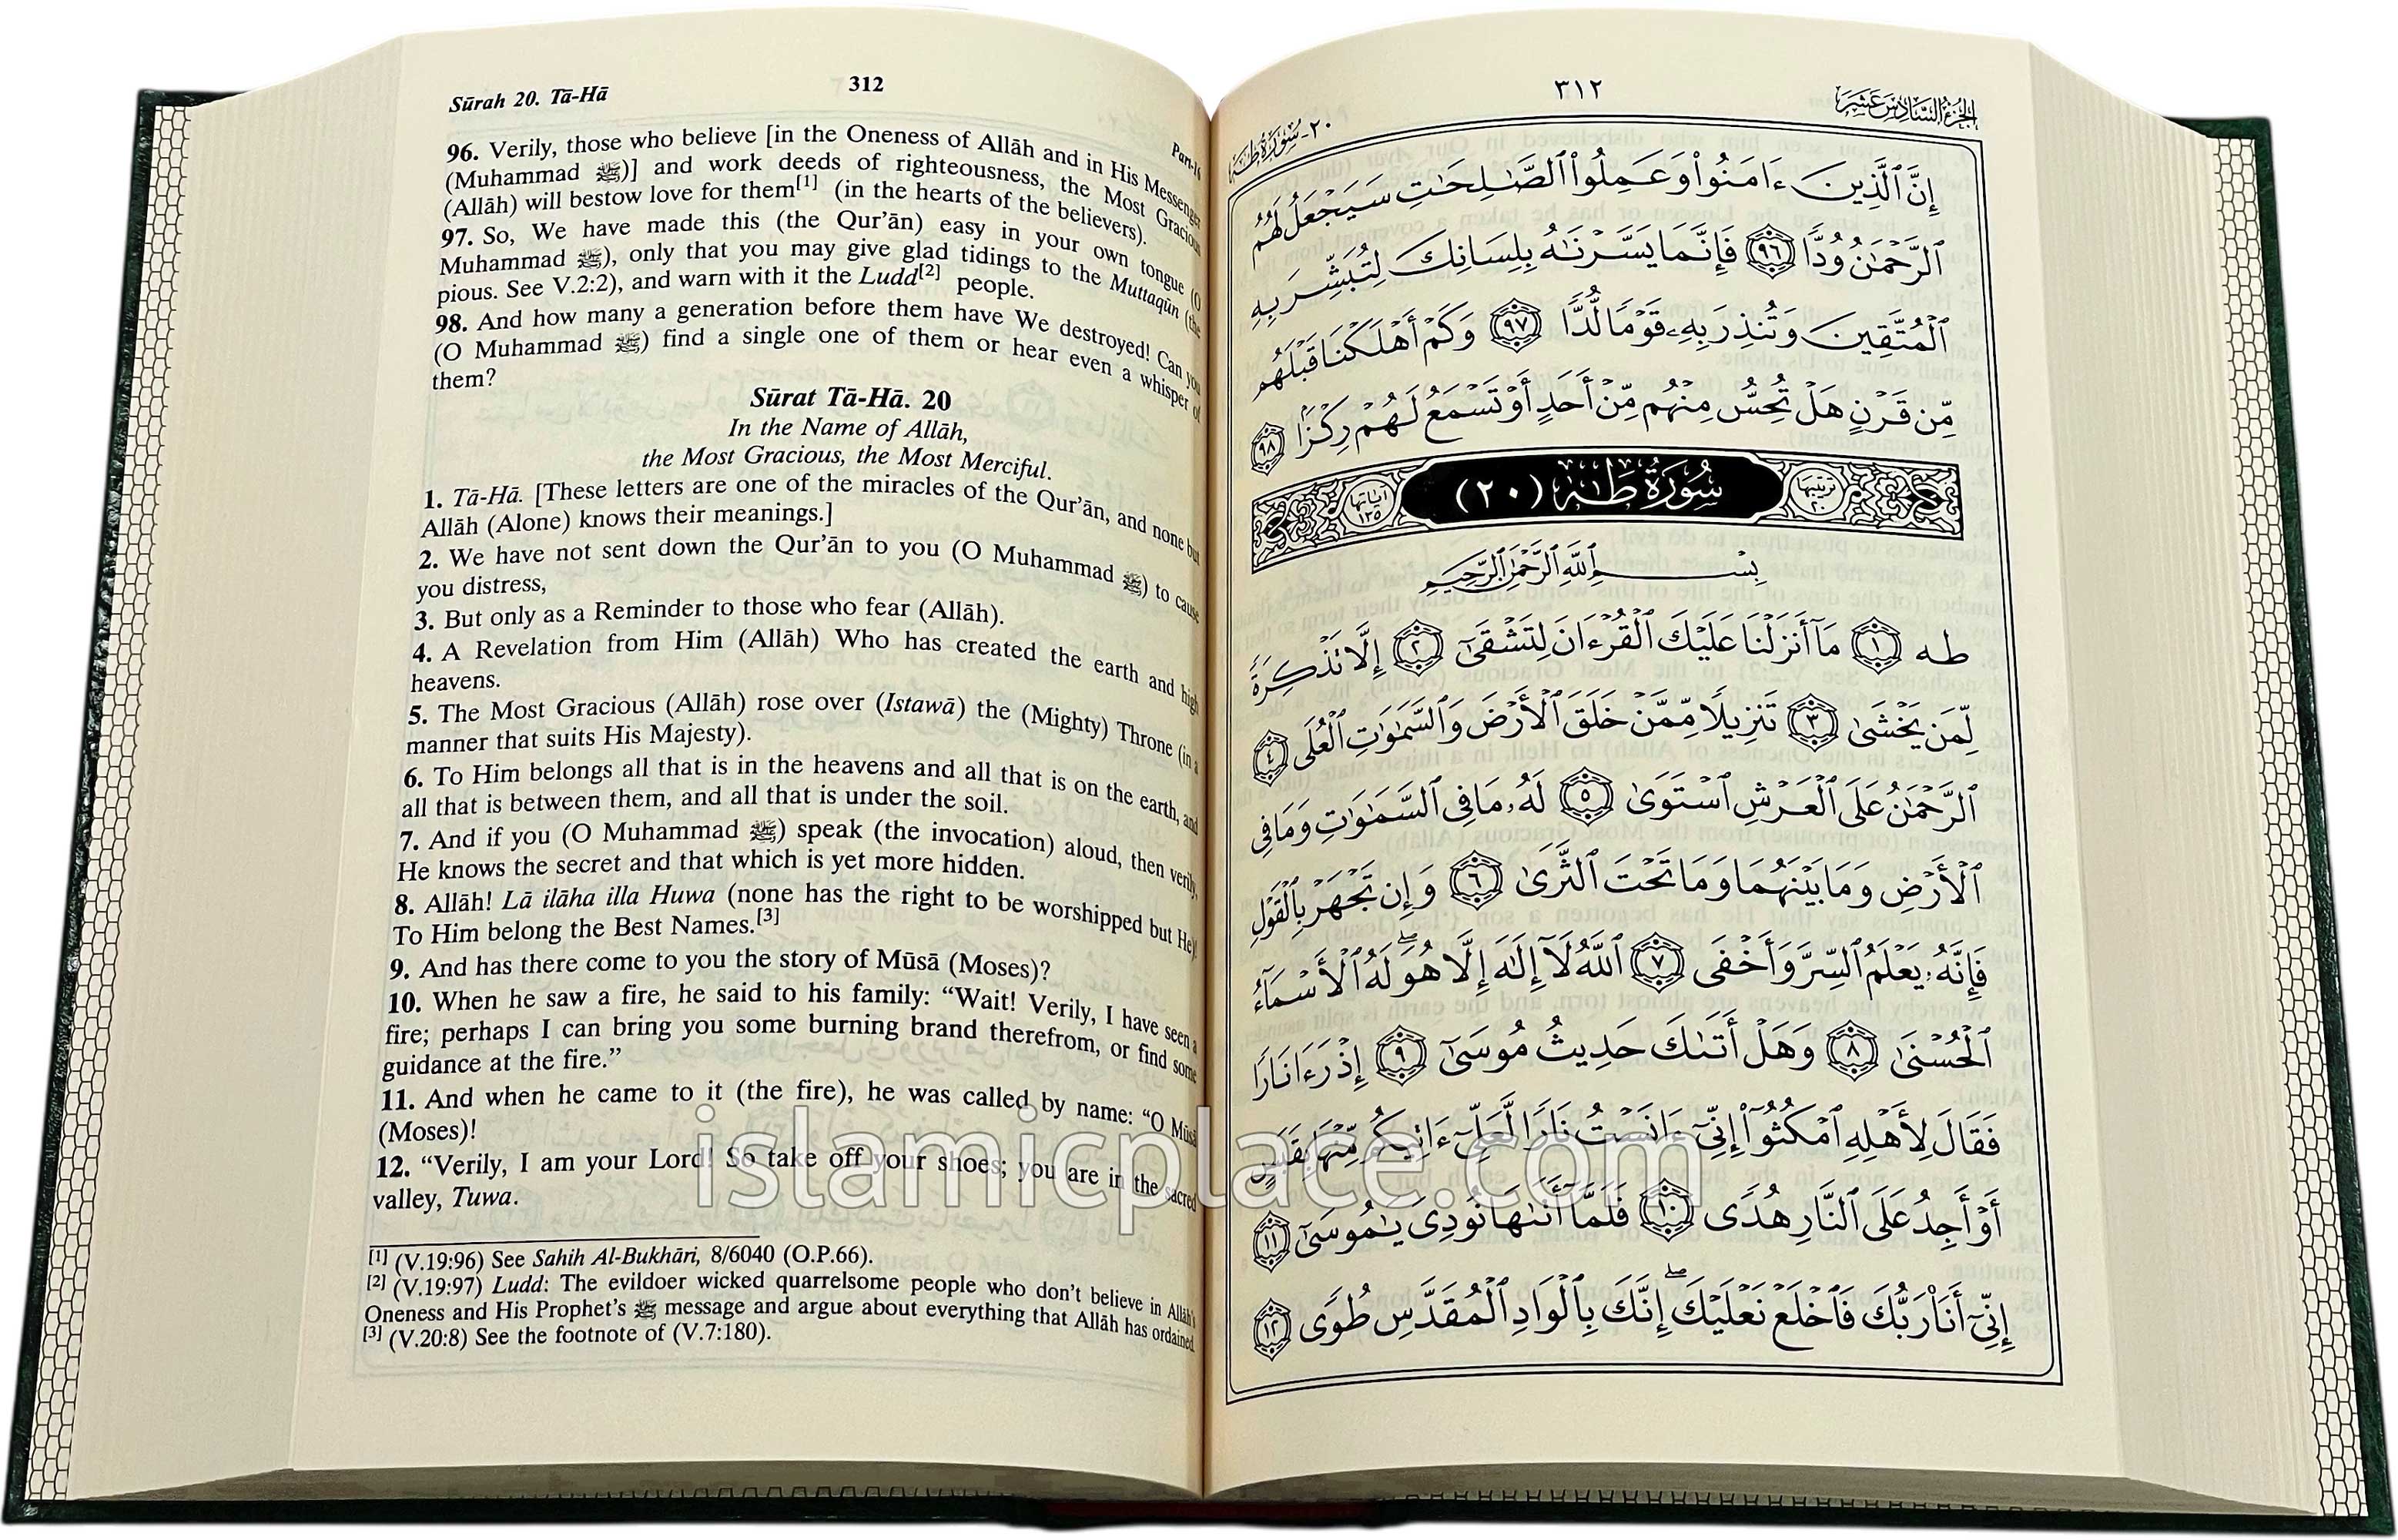 Sūrah 20. Tā-Hā
312
Part-16
96. Verily, those who believe [in the Oneness of Allāh and in His Messenger
(Muhammad ﷺ)] and work deeds of righteousness, the Most Gracious
(Allāh) will bestow love for them[1] (in the hearts of the believers).
97. So, We have made this (the Qur’ān) easy in your own tongue (O
Muhammad ﷺ), only that you may give glad tidings to the Muttaqūn (the
pious. See V.2:2), and warn with it the Ludd[2] people.
98. And how many a generation before them have We destroyed! Can you
(O Muhammad ﷺ) find a single one of them or hear even a whisper of
them?
Sūrat Tā-Hā. 20
In the Name of Allāh,
the Most Gracious, the Most Merciful.
1. Tā-Hā. [These letters are one of the miracles of the Qur’ān, and none but
Allāh (Alone) knows their meanings.]
2. We have not sent down the Qur’ān to you (O Muhammad ﷺ) to cause
you distress,
3. But only as a Reminder to those who fear (Allāh).
4. A Revelation from Him (Allāh) Who has created the earth and high
heavens.
5. The Most Gracious (Allāh) rose over (Istawā) the (Mighty) Throne (in a
manner that suits His Majesty).
6. To Him belongs all that is in the heavens and all that is on the earth, and
all that is between them, and all that is under the soil.
7. And if you (O Muhammad ﷺ) speak (the invocation) aloud, then verily,
He knows the secret and that which is yet more hidden.
8. Allāh! Lā ilāha illa Huwa (none has the right to be worshipped but He)!
To Him belong the Best Names.[3]
9. And has there come to you the story of Mūsā (Moses)?
10. When he saw a fire, he said to his family: “Wait! Verily, I have seen a
fire; perhaps I can bring you some burning brand therefrom, or find some
guidance at the fire.”
11. And when he came to it (the fire), he was called by name: “O Mūsā
(Moses)!
12. “Verily, I am your Lord! So take off your shoes; you are in the sacred
valley, Tuwa.
[1] (V.19:96) See Sahih Al-Bukhāri, 8/6040 (O.P.66).
[2] (V.19:97) Ludd: The evildoer wicked quarrelsome people who don’t believe in Allāh’s
Oneness and His Prophet’s ﷺ message and argue about everything that Allāh has ordained
[3] (V.20:8) See the footnote of (V.7:180).
الجزء السادس عشر
٣١٢
٢٠-سورة طه
إِنَّ ٱلَّذِينَ ءَامَنُواْ وَعَمِلُواْ ٱلصَّٰلِحَٰتِ سَيَجْعَلُ لَهُمُ
ٱلرَّحْمَٰنُ وُدًّا ٩٦ فَإِنَّمَا يَسَّرْنَٰهُ بِلِسَانِكَ لِتُبَشِّرَ بِهِ
ٱلْمُتَّقِينَ وَتُنذِرَ بِهِۦ قَوْمًا لُّدًّا ٩٧ وَكَمْ أَهْلَكْنَا قَبْلَهُم
مِّن قَرْنٍ هَلْ تُحِسُّ مِنْهُم مِّنْ أَحَدٍ أَوْ تَسْمَعُ لَهُمْ رِكْزًۢا ٩٨
ترتيبها ٢٠ سُورَةُ طَهٰ (٢٠) آياتها ١٣٥
بِسْمِ ٱللَّهِ ٱلرَّحْمَٰنِ ٱلرَّحِيمِ
طه ١ مَآ أَنزَلْنَا عَلَيْكَ ٱلْقُرْءَانَ لِتَشْقَىٰٓ ٢ إِلَّا تَذْكِرَةً
لِّمَن يَخْشَىٰ ٣ تَنزِيلًا مِّمَّنْ خَلَقَ ٱلْأَرْضَ وَٱلسَّمَٰوَٰتِ ٱلْعُلَى ٤
ٱلرَّحْمَٰنُ عَلَى ٱلْعَرْشِ ٱسْتَوَىٰ ٥ لَهُۥ مَا فِى ٱلسَّمَٰوَٰتِ وَمَا فِى
ٱلْأَرْضِ وَمَا بَيْنَهُمَا وَمَا تَحْتَ ٱلثَّرَىٰ ٦ وَإِن تَجْهَرْ بِٱلْقَوْلِ
فَإِنَّهُۥ يَعْلَمُ ٱلسِّرَّ وَأَخْفَى ٧ ٱللَّهُ لَآ إِلَٰهَ إِلَّا هُوَ ۖ لَهُ ٱلْأَسْمَآءُ
ٱلْحُسْنَىٰ ٨ وَهَلْ أَتَىٰكَ حَدِيثُ مُوسَىٰٓ ٩ إِذْ رَءَا نَارًا
فَقَالَ لِأَهْلِهِ ٱمْكُثُوٓاْ إِنِّىٓ ءَانَسْتُ نَارًا لَّعَلِّىٓ ءَاتِيكُم مِّنْهَا بِقَبَسٍ
أَوْ أَجِدُ عَلَى ٱلنَّارِ هُدًى ١٠ فَلَمَّآ أَتَىٰهَا نُودِىَ يَٰمُوسَىٰٓ ١١
إِنِّىٓ أَنَا۠ رَبُّكَ فَٱخْلَعْ نَعْلَيْكَ ۖ إِنَّكَ بِٱلْوَادِ ٱلْمُقَدَّسِ طُوًى ١٢
islamicplace.com